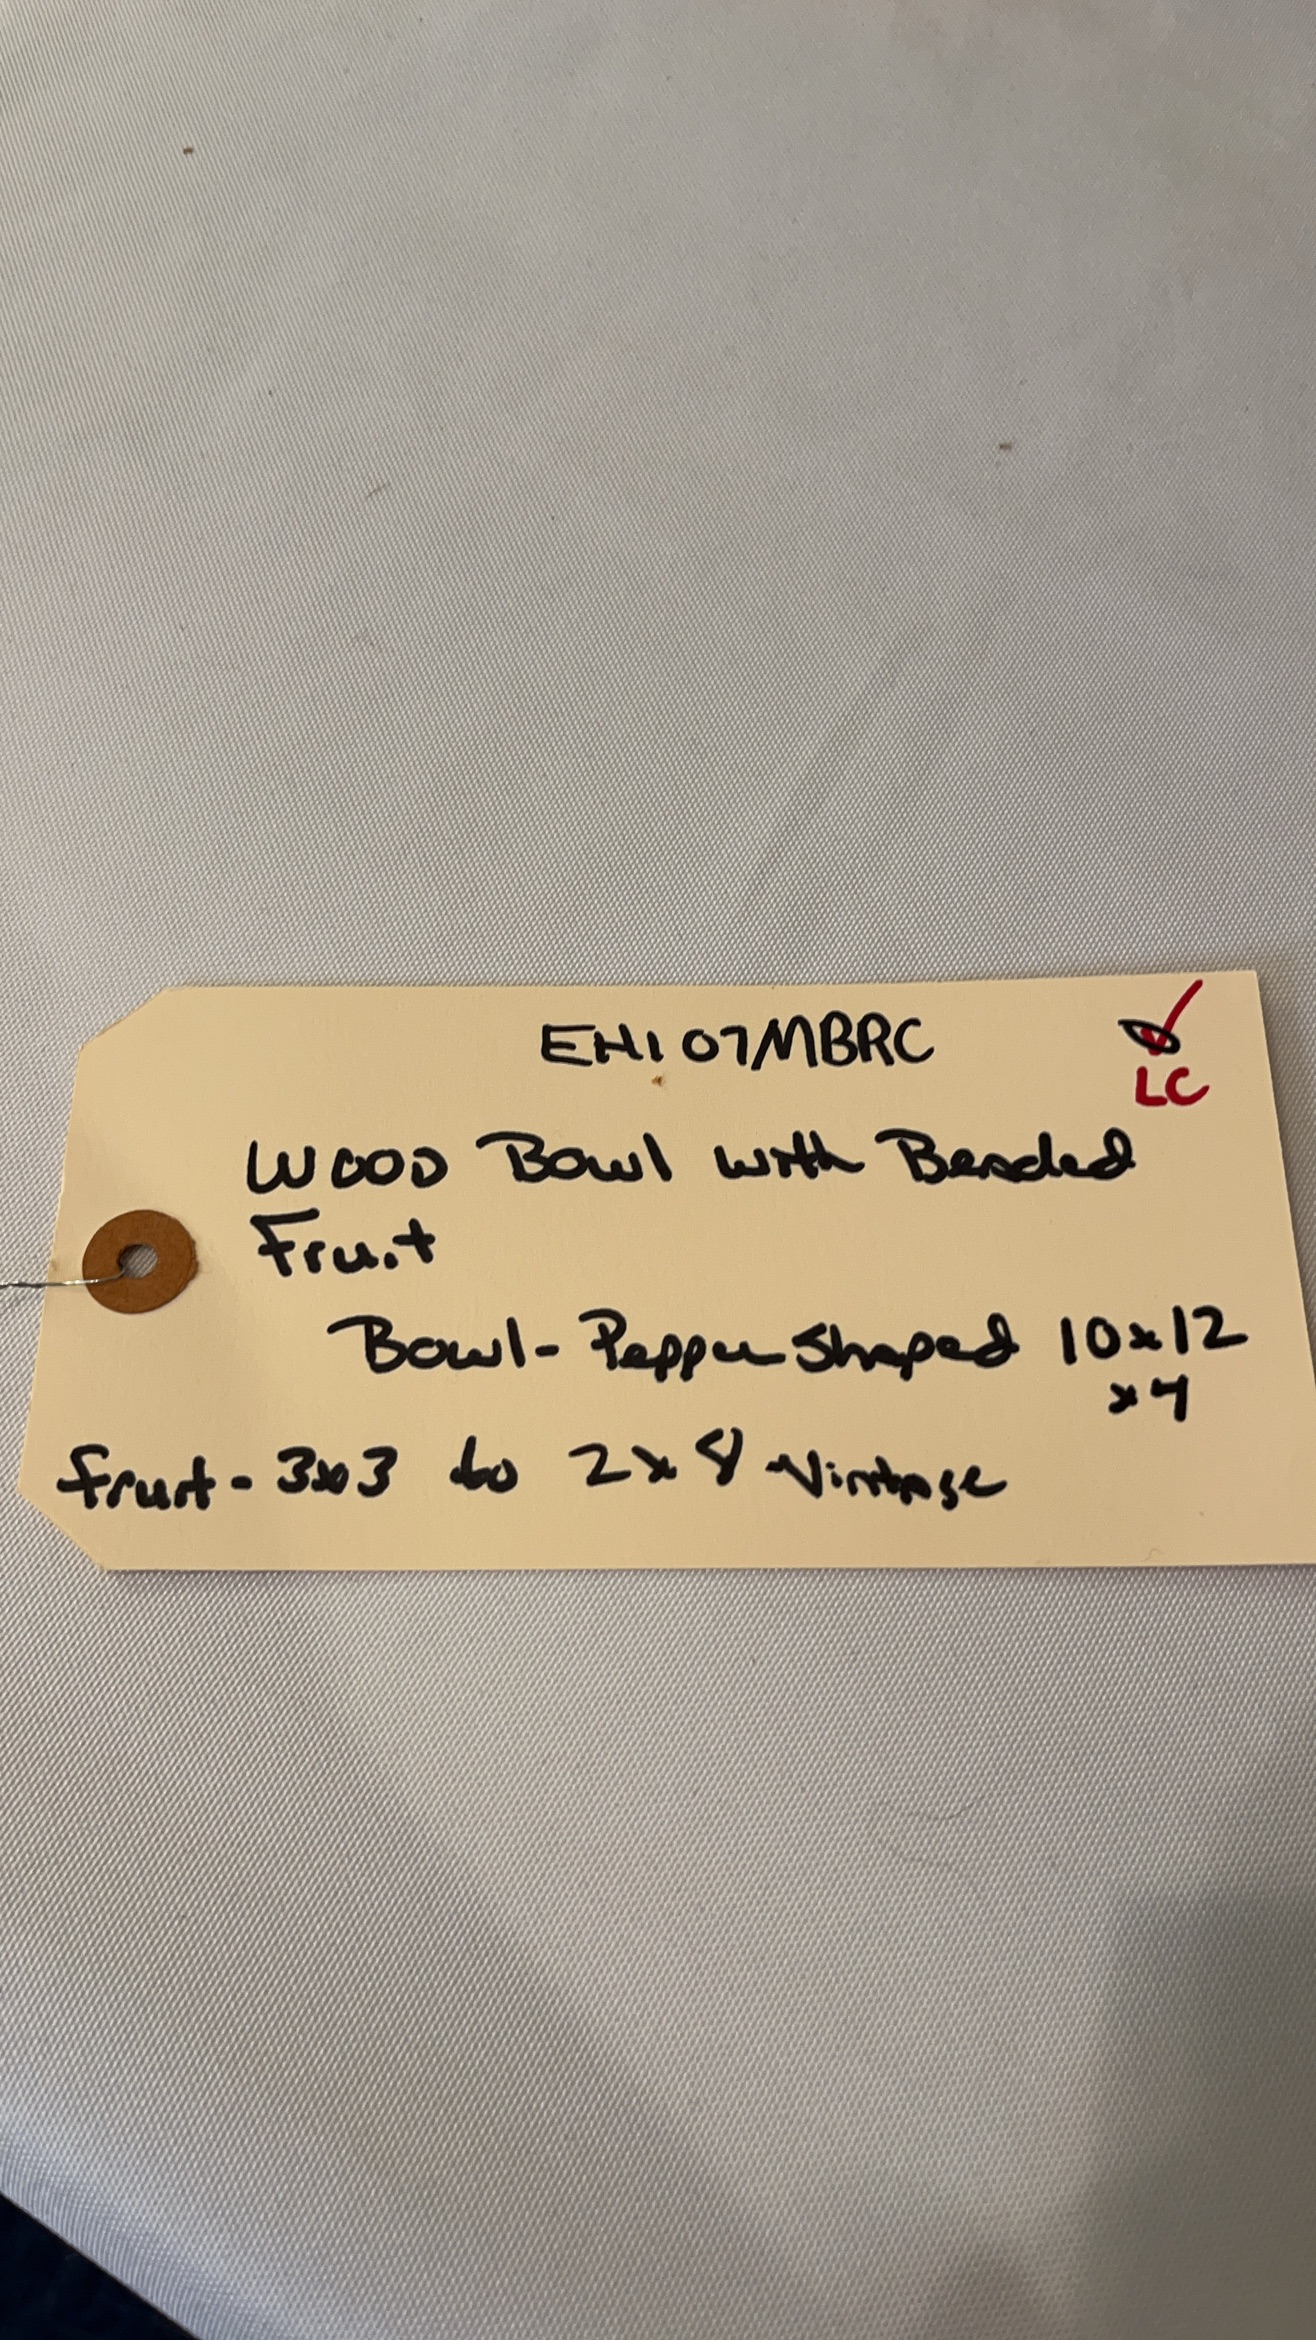 EH107MBRC
LC
WOOD Bowl with Beaded
Fruit
Bowl - Pepper Shaped 10x12
x4
fruit - 3x3 to 2x8 Vintage